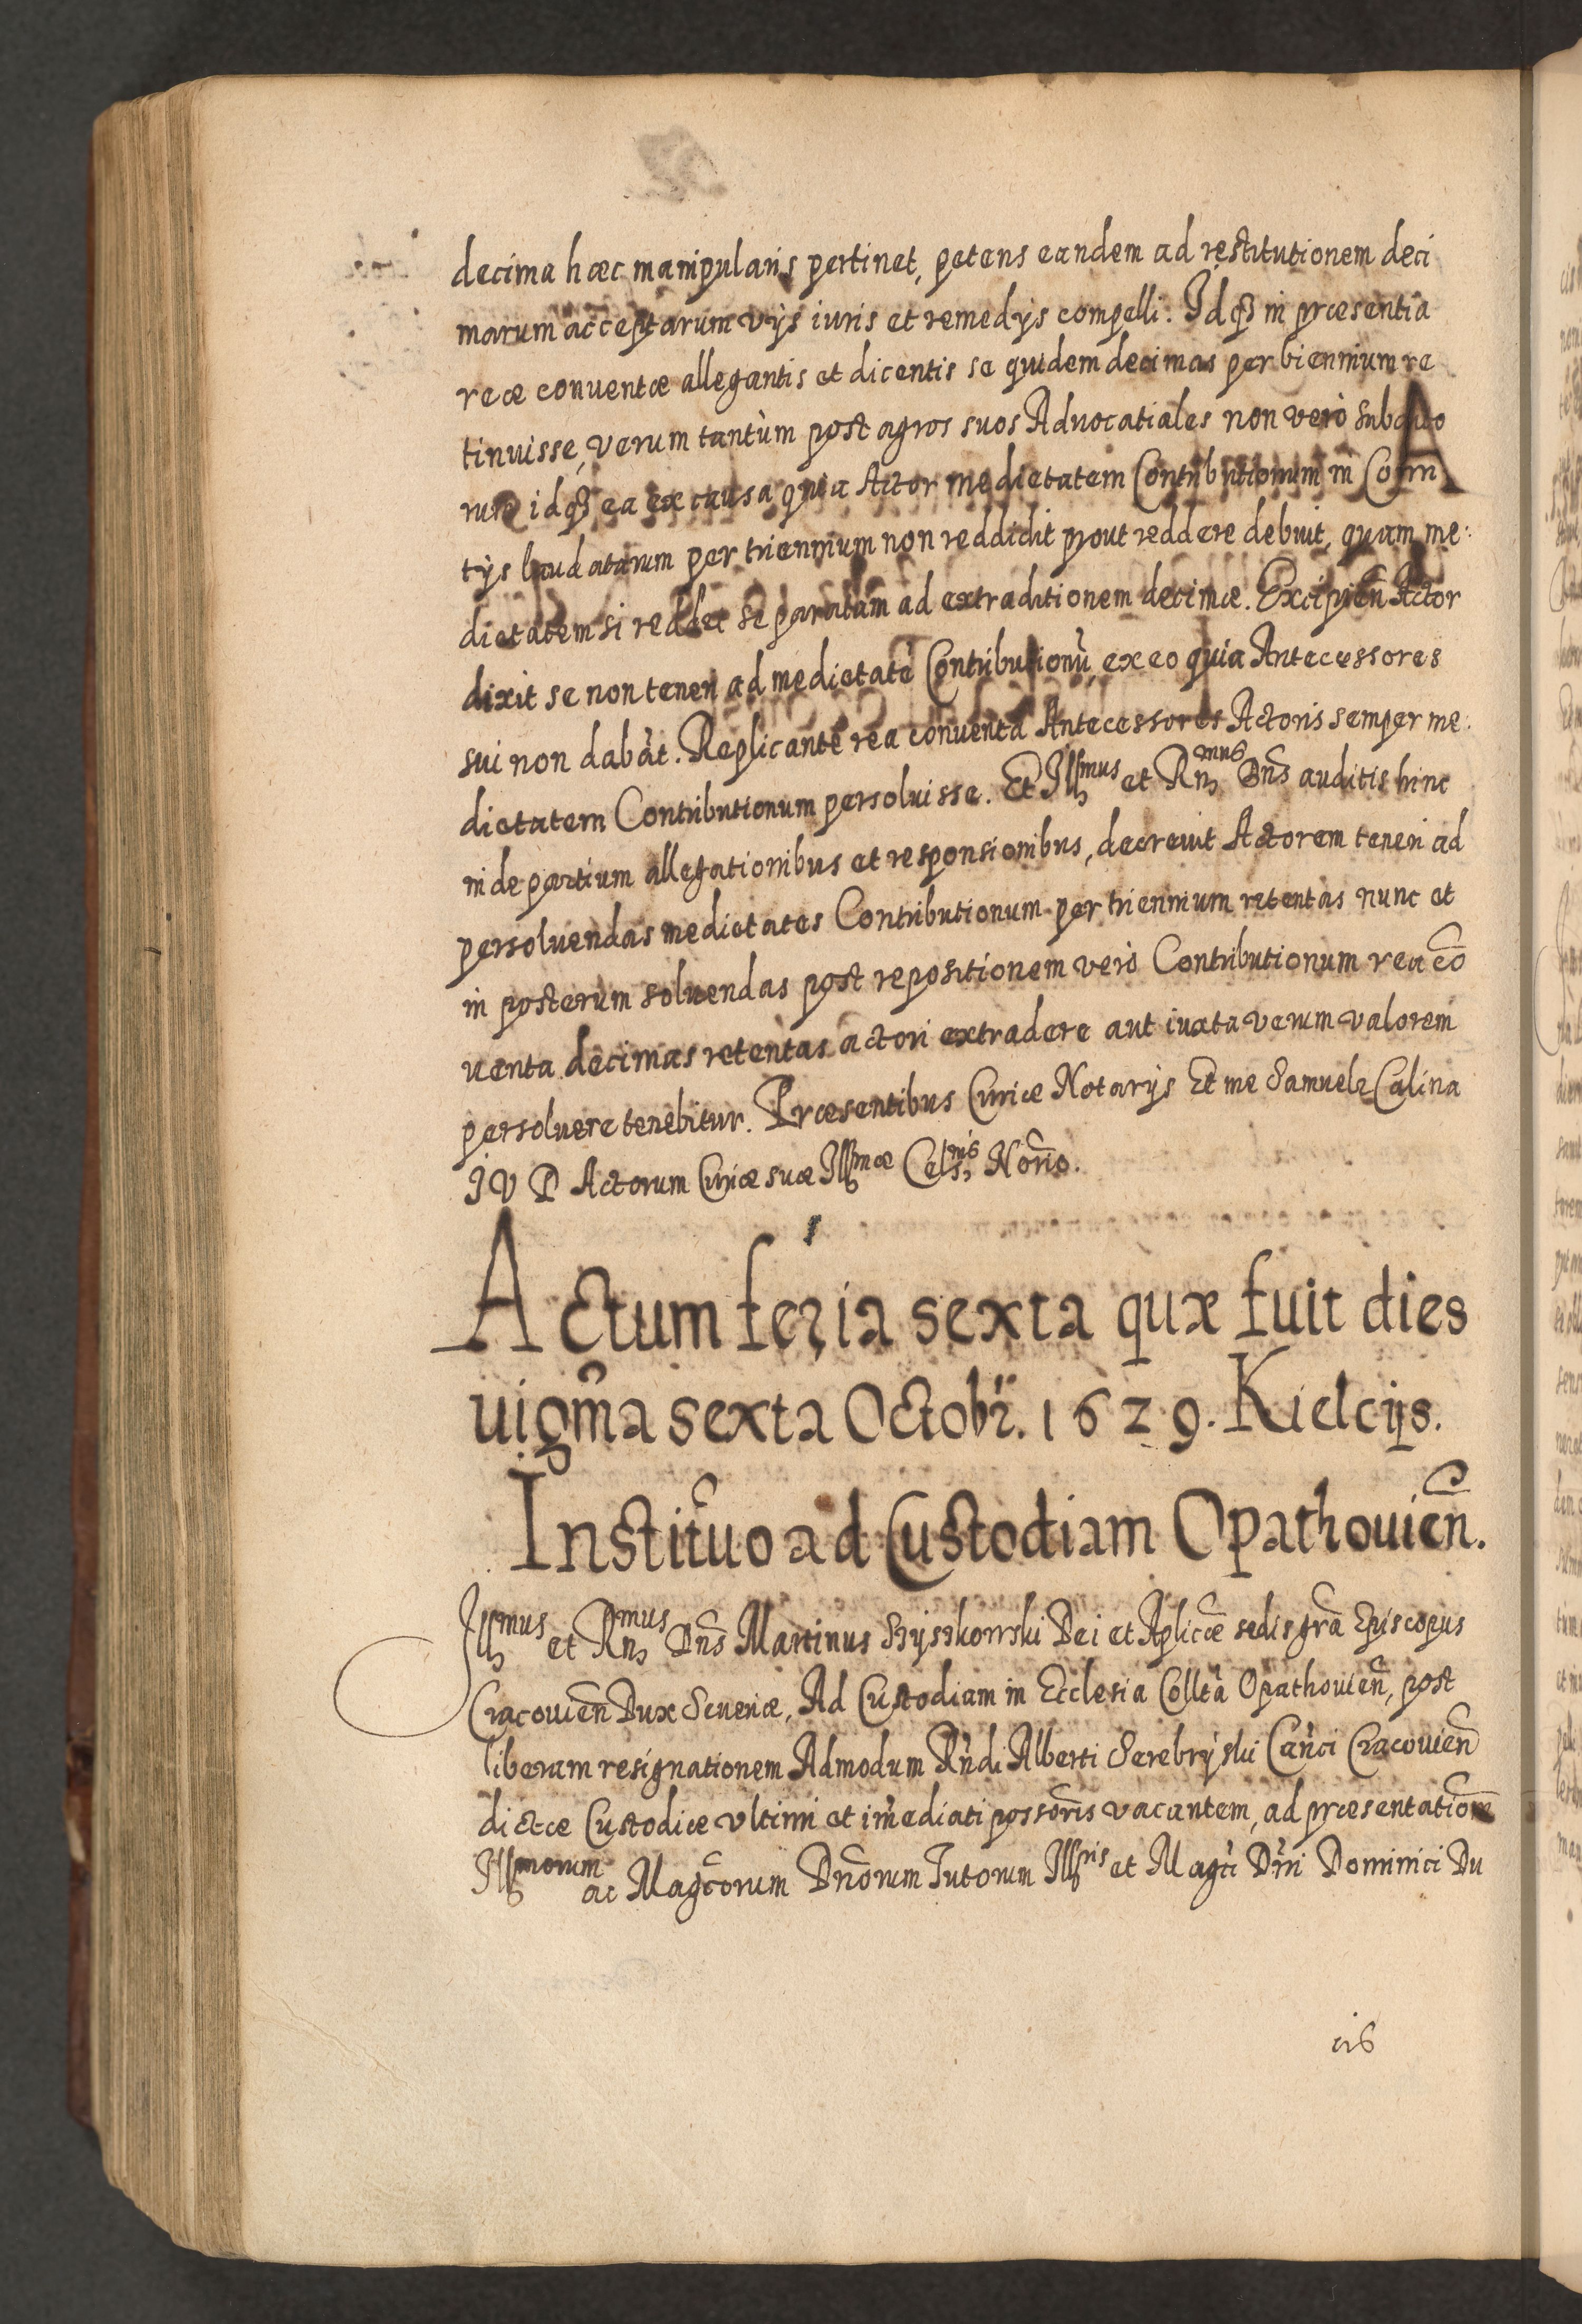 decima hæc manipularis pertinet, petens eandem ad restitutionem deci
marum acceptarum vijs iuris et remedijs compelli. Idq3 in præsentia
reæ conuentæ allegantis et dicentis se quidem decimas per biennium re
tinuisse, verum tantùm post agros suos Aduocatiales non verò subdito
rum idq3 ea ex causa quia Actor medietatem Contributionum in Comi
tijs laudatarum per triennium non reddidit prout reddere debuit, quam me
dietatem si reddet se paratam ad extraditionem decimæ. Excipien̄ Actor
dixit se non teneri ad medietatē Contributionū, ex eo quia Antecessores
sui non dabāt. Replicante rea conuenta Antecessores Actoris semper me
dietatem Contributionum persoluisse. Et Illmus et Rnmus Dns̄ auditis hinc
inde partium allegationibus et responsionibus, decreuit Actorem teneri ad
persoluendas medietates Contributionum per triennium retentas nunc et
in posterum soluendas post repositionem verò Contributionum rea cō
uenta decimas retentas actori extradere aut iuxta verum valorem
persoluere tenebitur. Præsentibus Curiæ Notarijs Et me Samuele Calina
I V D Actorum Curiæ suæ Illmæ Celsnis Norio.
Actum feria sexta quæ fuit dies
uigm̄a sexta Octobr̄. 1629. Kielcijs.
Institūo ad Custodiam Opathouien̄.
Illmus et Rnmus Dns̄ Martinus Szyszkowski Dei et Aplicæ sedis grā Episcopus
Cracouien̄ Dux Seueriæ, Ad Custodiam in Ecclesia Collta Opathouien̄, post
liberam resignationem Admodum Rndi Alberti Serebryski Canci Cracouien̄
dictæ Custodiæ vltimi et imediati possoris vacantem, ad præsentationē
Illmorum ac Magcorum Dnorum Tutorum Illris et Magci Dni Dominici Du
cis